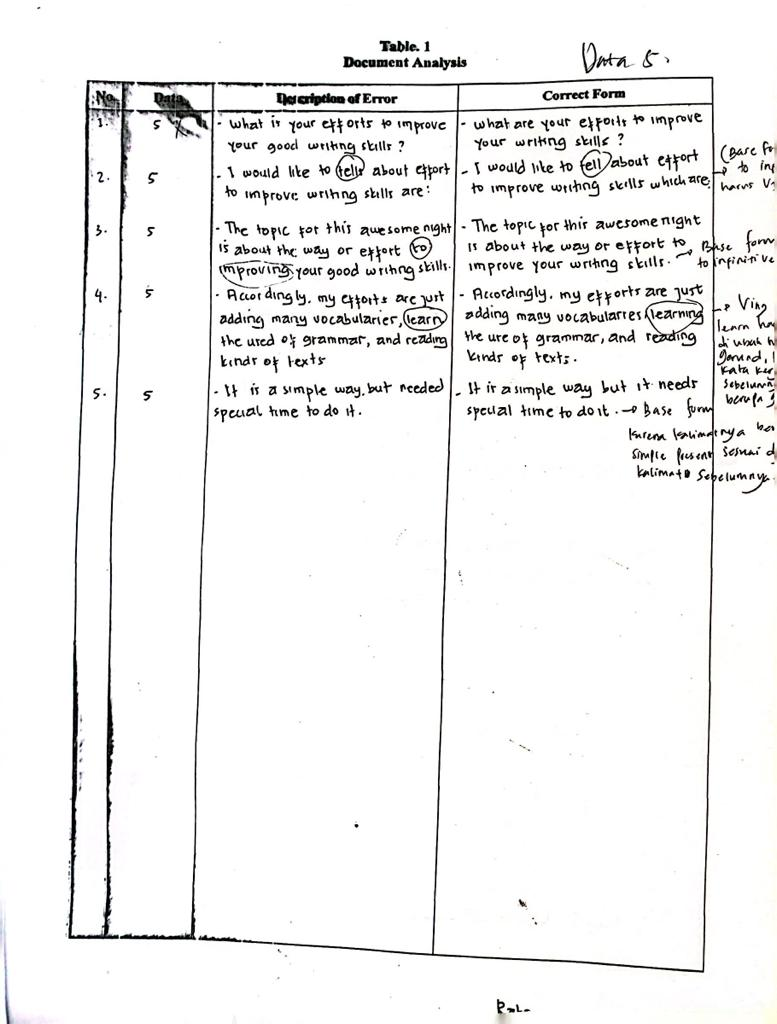 Table. 1
Document Analysis
Data 5.
No
Data
Description of Error
Correct Form
1.
5
- What is your efforts to improve
your good writing skills ?
- What are your efforts to improve
your writing skills ?
2.
5
- I would like to tells about effort
to improve writing skills are:
- I would like to tell about effort
to improve writing skills which are:
(Base fo
→ to in
harus V
3.
5
- The topic for this awesome night
is about the way or effort to
improving your good writing skills.
- The topic for this awesome night
is about the way or effort to
improve your writing skills.
→ Base form
to infinitive
4.
5
- Accordingly, my efforts are just
adding many vocabularies, learn
the used of grammar, and reading
kinds of texts
- Accordingly, my efforts are just
adding many vocabularies learning
the use of grammar, and reading
kinds of texts.
→ Ving
learn ha
diubah
kata ker
sebelumn
berupa g
5.
5
- It is a simple way, but needed
special time to do it.
- It is a simple way but it needs
special time to do it. → Base form
karena kalimatnya ber
simple present sesuai d
kalimat sebelumnya.